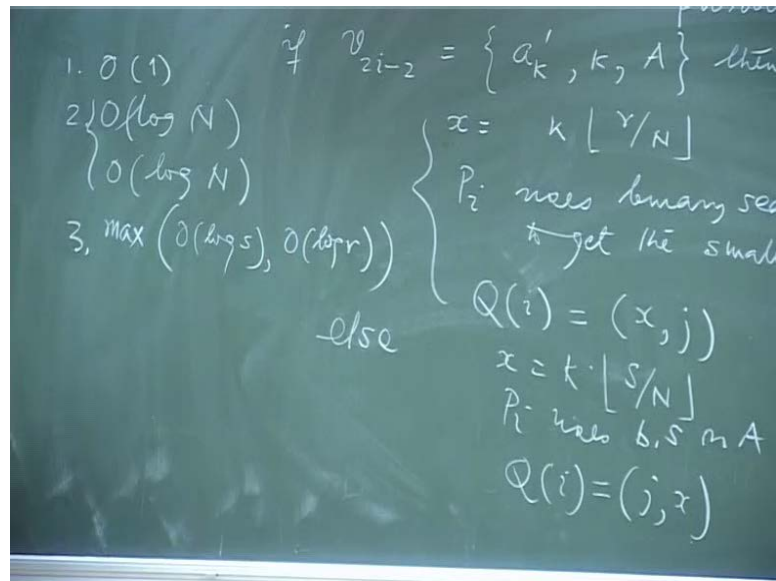 1. O(1)
2. O(log N)
O(log N)
3. max (O(log s), O(log r))
if v_{2i-2} = { a'_k, k, A } then
x = k ⌊ r/N ⌋
P_i uses binary sea
to get the small
Q(i) = (x, j)
else
x = k · ⌊ s/N ⌋
P_i uses b.s in A
Q(i) = (j, x)